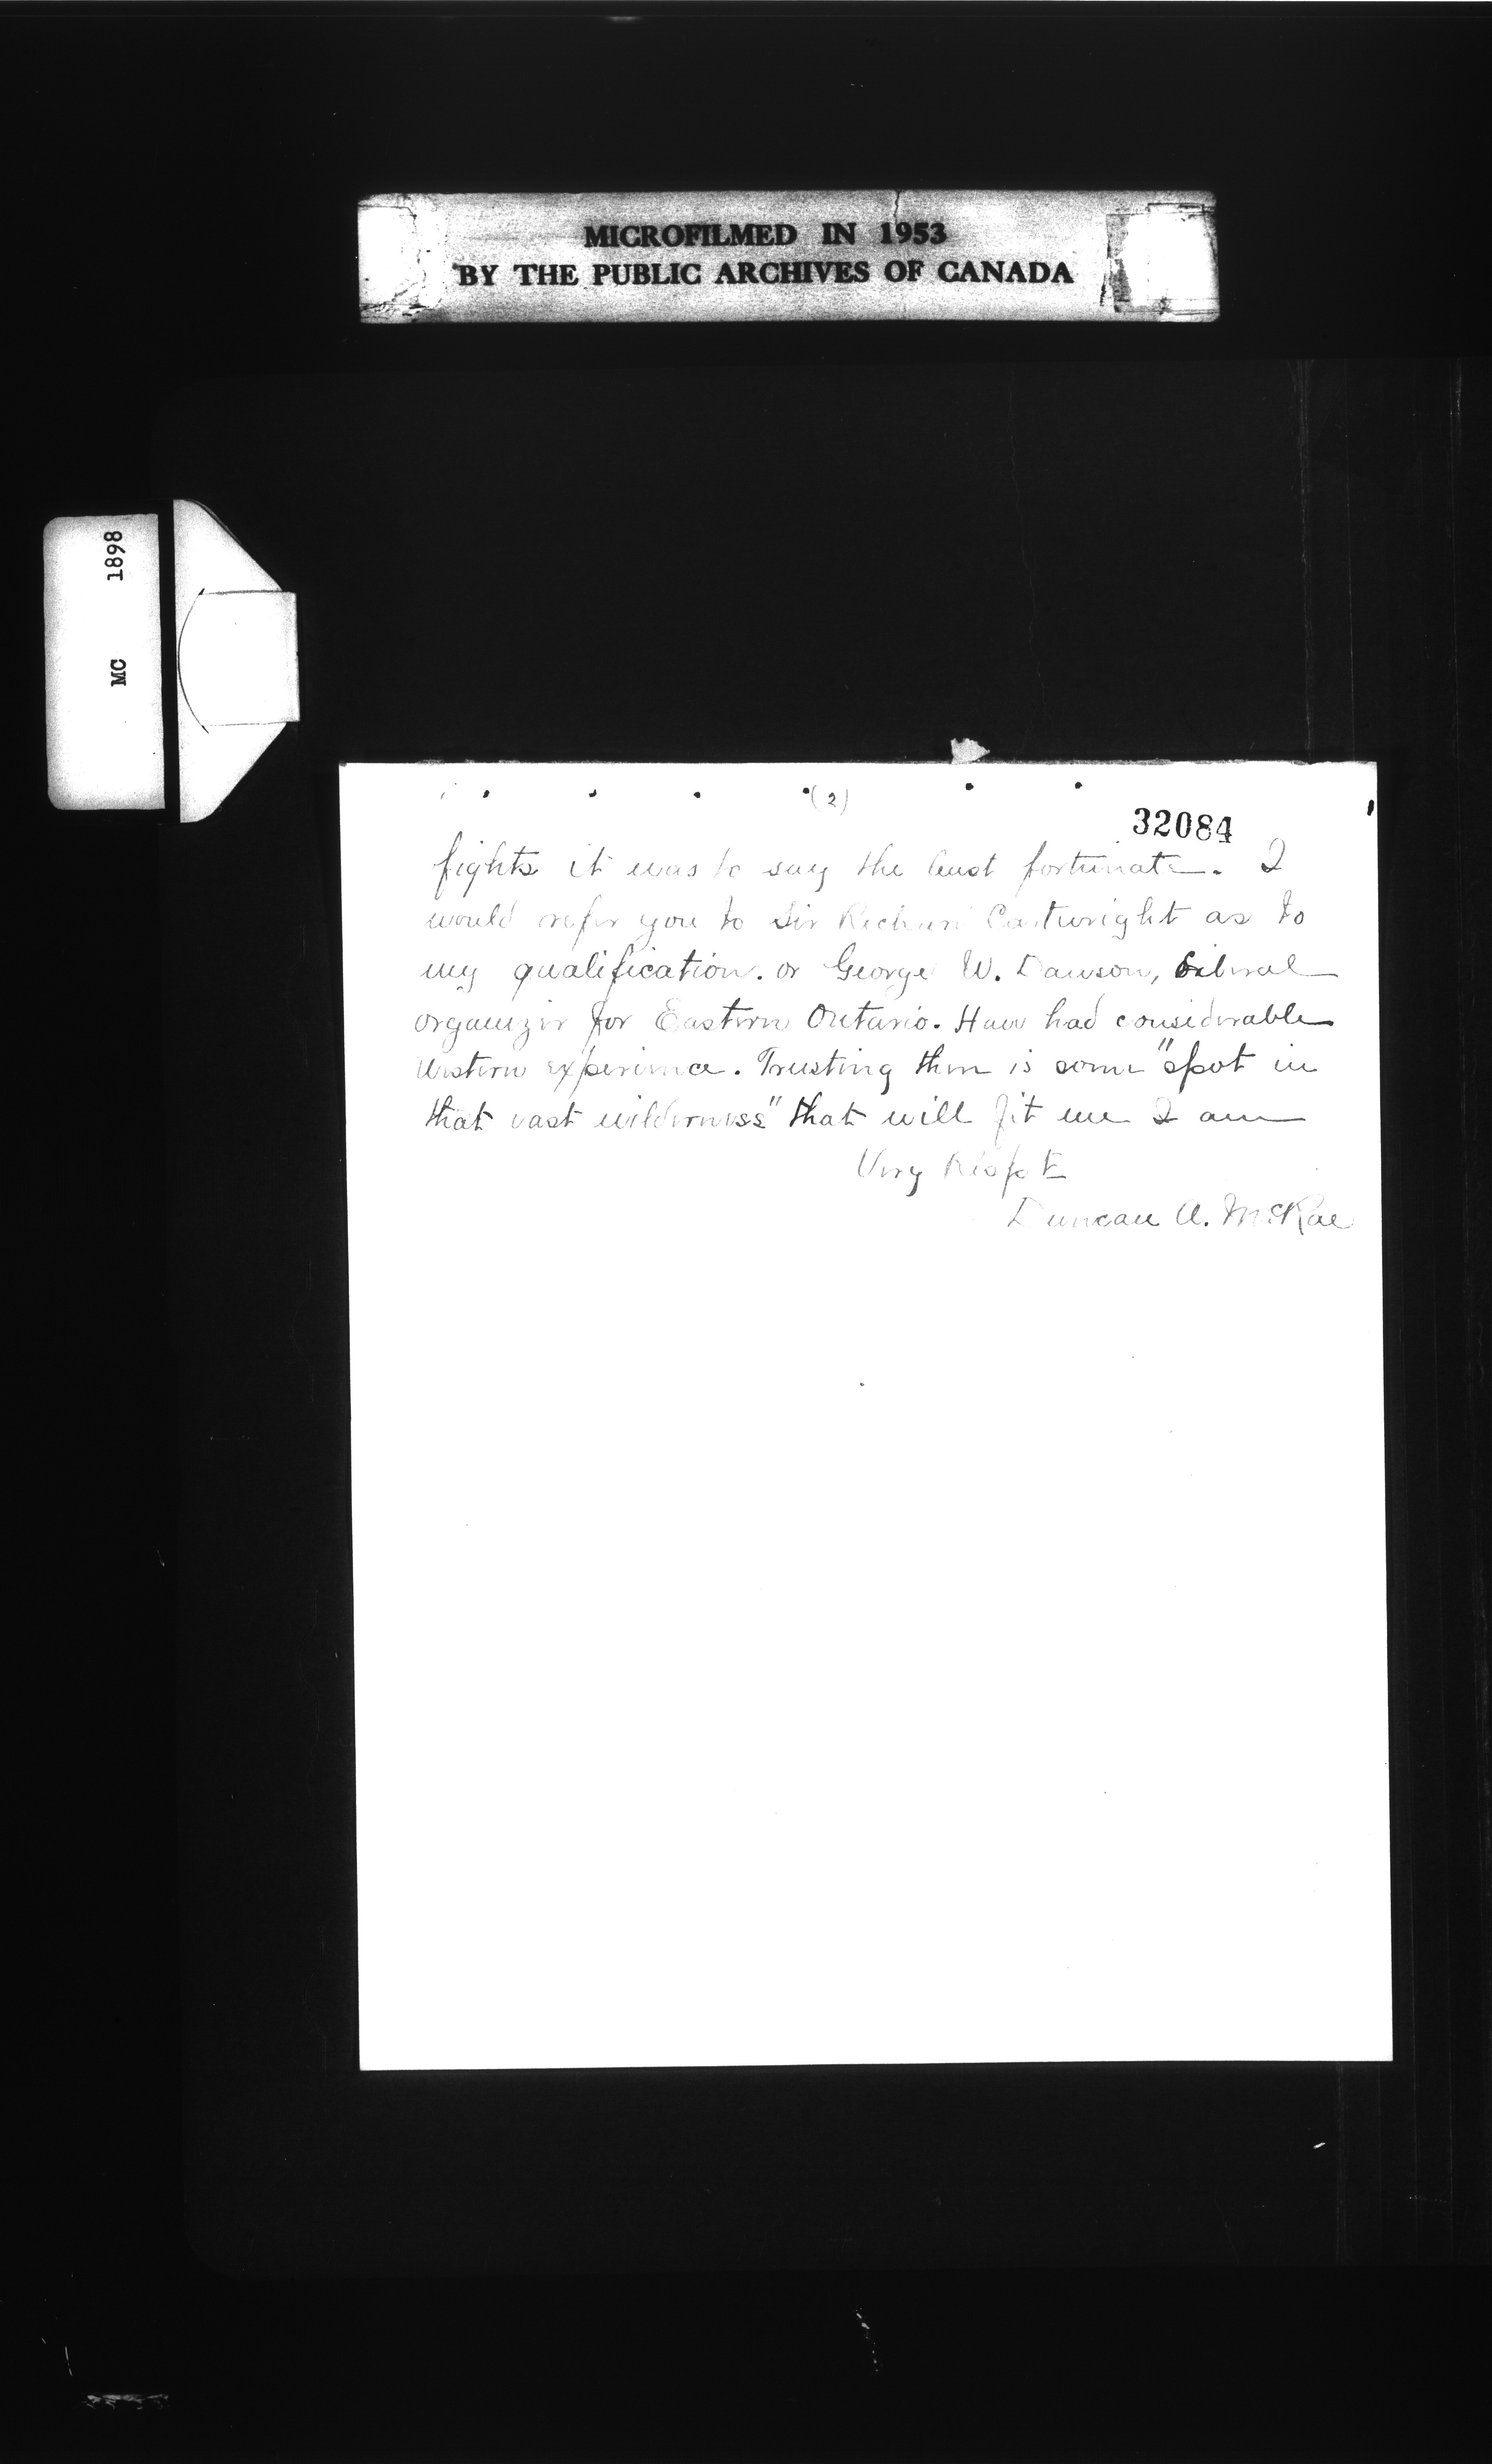 MICROFILMED IN 1953
BY THE PUBLIC ARCHIVES OF CANADA
MC 1898
(2)
32084
fights it was to say the least fortunate. I
would refer you to Sir Richard Cartwright as to
my qualification. or George W. Dawson, Liberal
organizer for Eastern Ontario. Have had considerable
Western experience. Trusting there is some "spot in
that vast wilderness" that will fit me I am
Very Respt
Duncan A. McRae